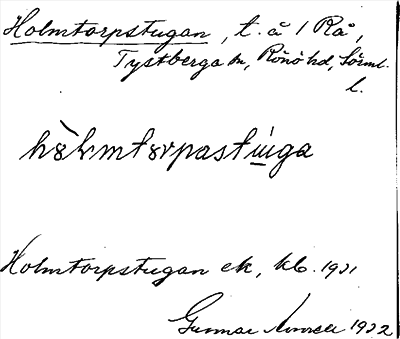 Holmtorpstugan, t. å 1 Rå,
Tystberga sn, Rönö hd, Sörml.
l.
hòlmtorpastúga
Holmtorpstugan ek, kb. 1921
Gunnar 1922